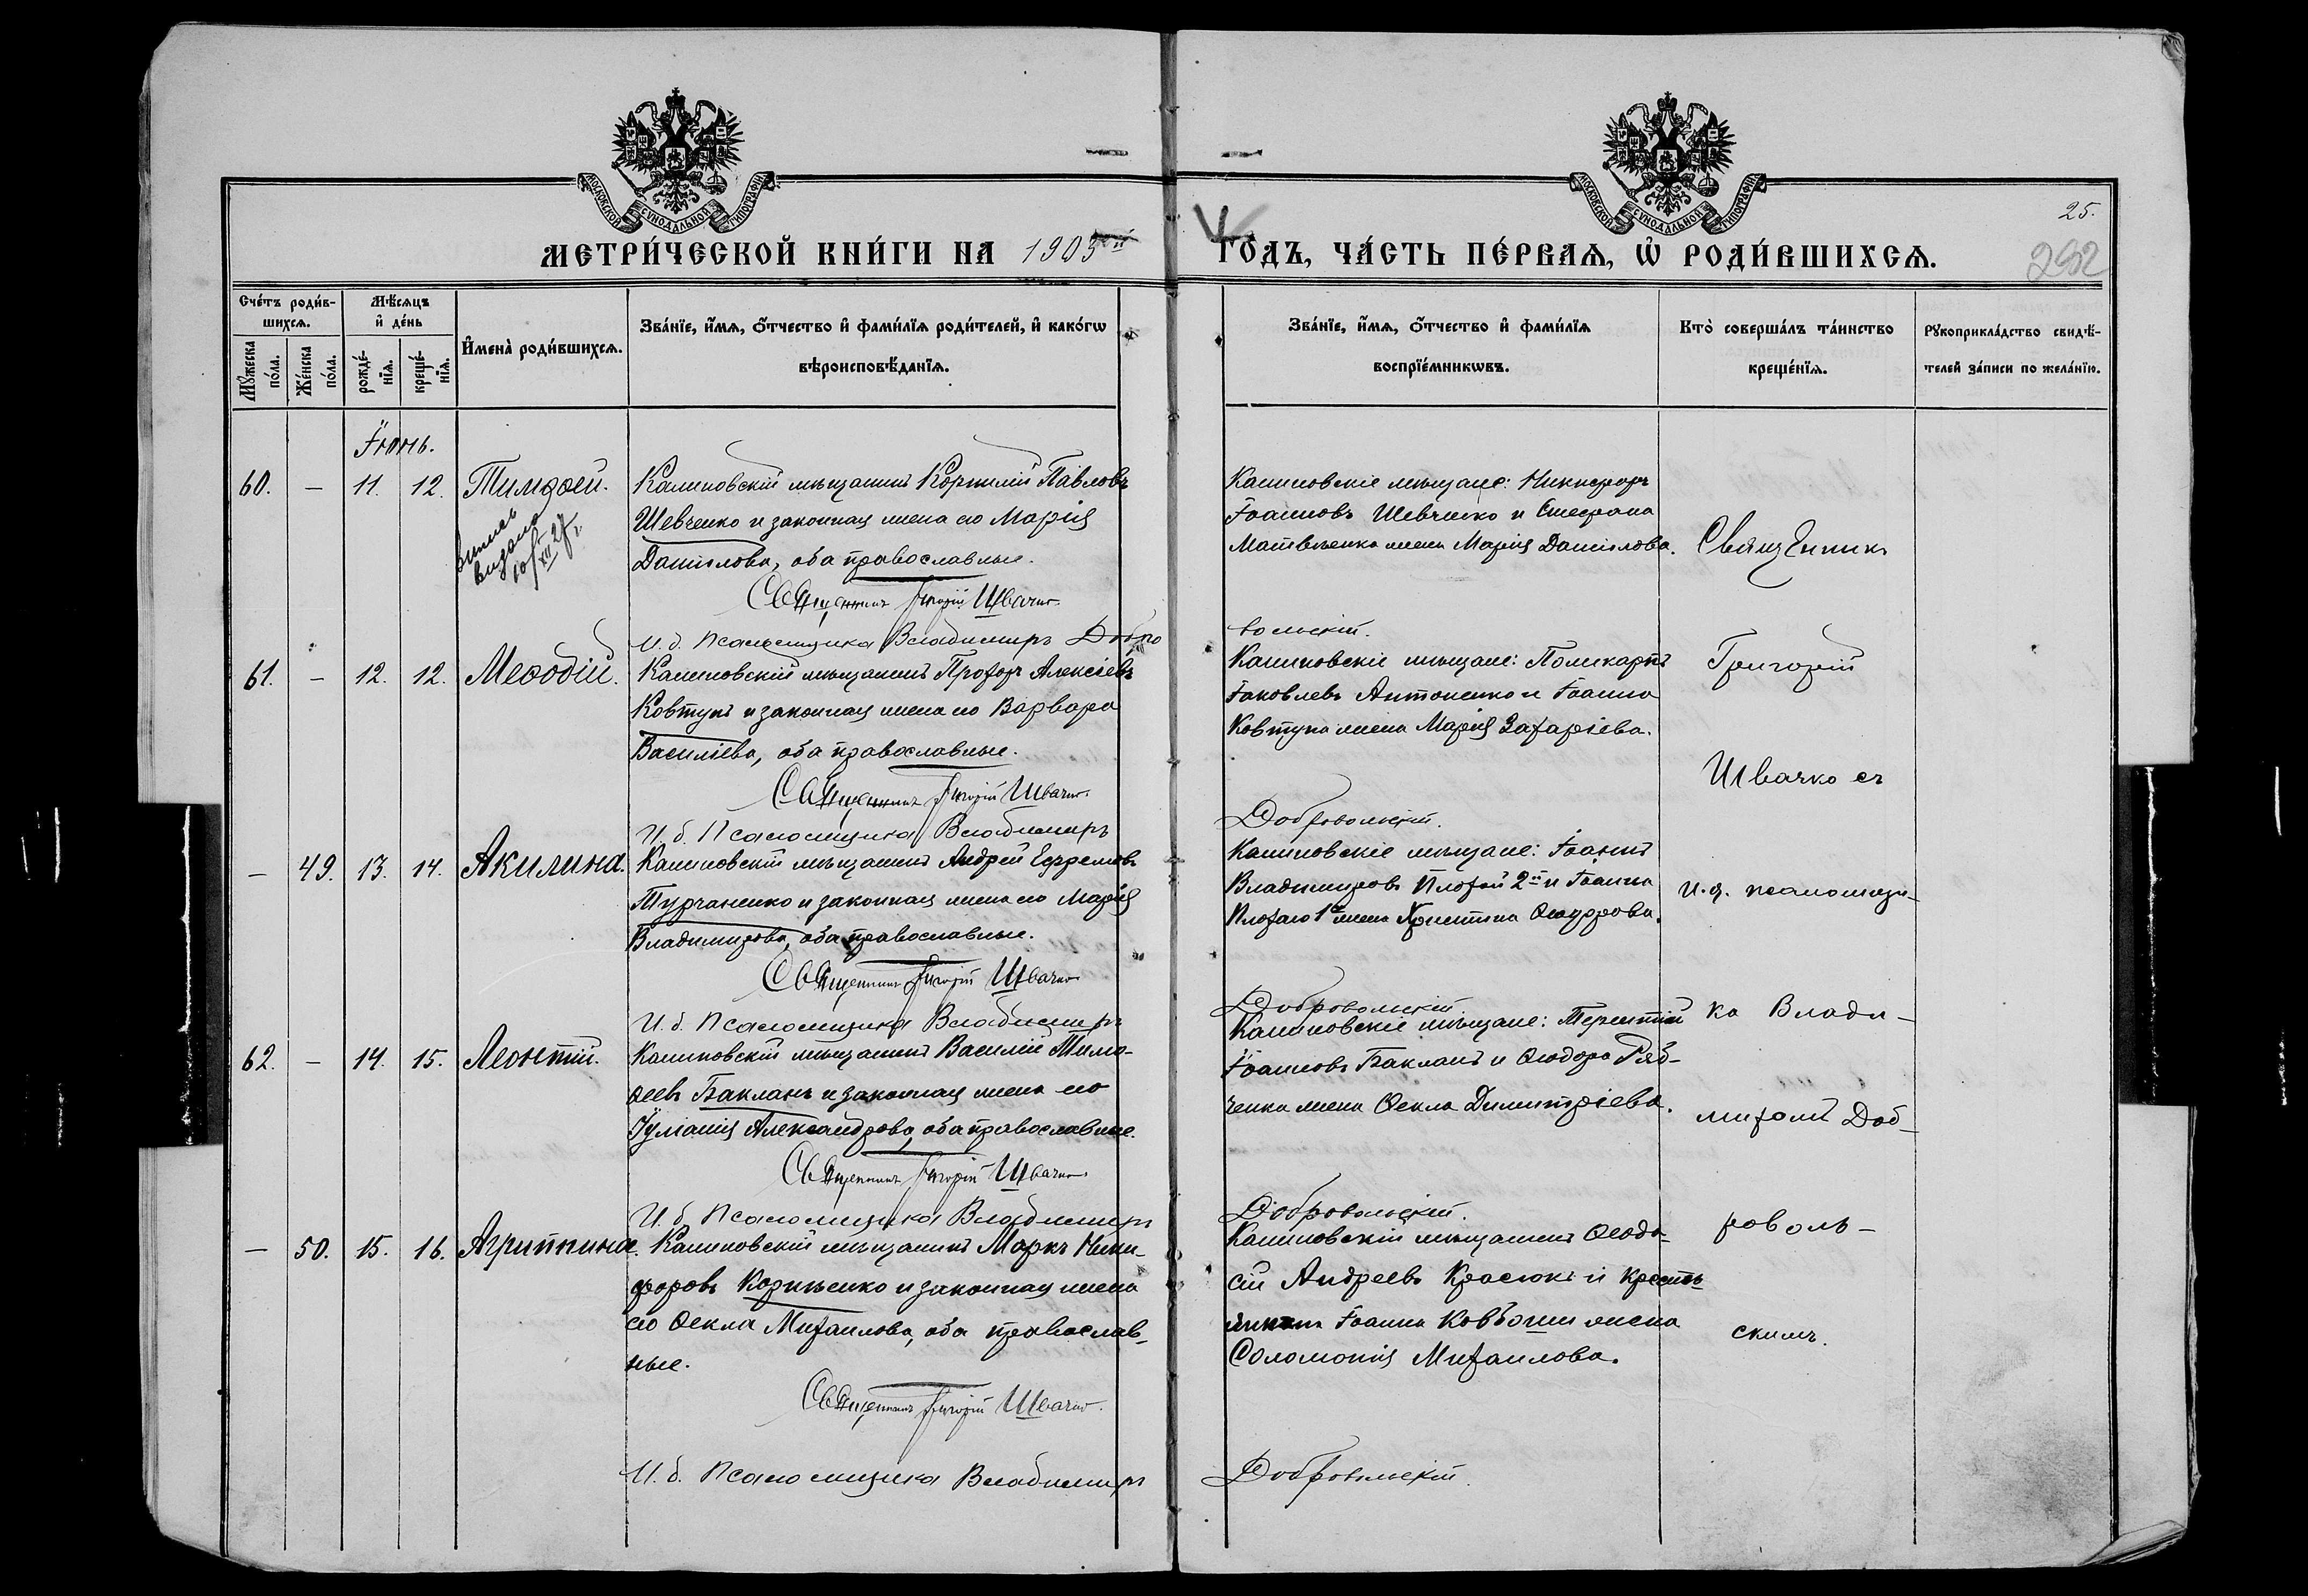 МОСКОВСКОЙ СѴНОДАЛЬНОЙ ТИПОГРАФІИ
МОСКОВСКОЙ СѴНОДАЛЬНОЙ ТИПОГРАФІИ
25.
МЕТРИ́ЧЕСКОЙ КНИ́ГИ НА 1903 ГО́ДЪ, ЧА́СТЬ ПЕ́РВАѦ, Ѡ҆ РОДИ́ВШИХСѦ.
292
Сче́тъ роди́в-
шихсѧ.
Мѣ́сѧцъ
и҆ де́нь
Мꙋ́жеска
по́ла.
Же́нска
по́ла.
рожде́-
нїѧ.
креще́-
нїѧ.
И҆мена̀ роди́вшихсѧ.
Зва́нїе, и҆́мѧ, ѻ҆́тчество и҆ фами́лїѧ роди́телей, и҆ како́гѡ
вѣроисповѣ́данїѧ.
Зва́нїе, и҆́мѧ, ѻ҆́тчество и҆ фами́лїѧ
воспрїе́мникѡвъ.
Кто̀ соверша́лъ та́инство
креще́нїѧ.
Рꙋкоприкла́дство свидѣ́-
телей за́писи по жела́нїю.
Іюнь.
60. — 11. 12. Тимоѳей.
Калиновскій мѣщанинъ Корнилій Павловъ
Шевченко и законная жена его Марія
Данилова, оба православные.
Священникъ Григорій Швачко.
И. д. Псаломщика Владимиръ Добро
Калиновскіе мѣщане: Никифоръ
Іоанновъ Шевченко и Стефана
Матвѣенка жена Марія Данилова.
вольскій.
выпись
выдана
10/XII 27 г.
61. — 12. 12. Меѳодій.
Калиновскій мѣщанинъ Прохоръ Алексіевъ
Ковтунъ и законная жена его Варвара
Василіева, оба православные.
Священникъ Григорій Швачко.
И. д. Псаломщика Владимиръ
Калиновскіе мѣщане: Поликарпъ
Іаковлевъ Антоненко и Іоанна
Ковтуна жена Марія Захаріева.
Добровольскій.
— 49. 13. 14. Акилина.
Калиновскій мѣщанинъ Андрей Ефремовъ
Турчаненко и законная жена его Марія
Владимирова, оба православные.
Священникъ Григорій Швачко.
И. д. Псаломщика Владимиръ
Калиновскіе мѣщане: Іоаннъ
Владимировъ Плохой 2й и Іоанна
Плохаго 1го жена Христина Ѳеодорова.
Добровольскій
62. — 14. 15. Леонтій.
Калиновскій мѣщанинъ Василій Тимо-
ѳеевъ Бакланъ и законная жена его
Іуліанія Александрова, оба православные.
Священникъ Григорій Швачко.
И. д. Псаломщика Владимиръ
Калиновскіе мѣщане: Терентій
Іоанновъ Бакланъ и Ѳеодора Ряб-
ченка жена Ѳекла Димитріева.
Добровольскій.
— 50. 15. 16. Агриппина.
Калиновскій мѣщанинъ Маркъ Ники-
форовъ Корніенко и законная жена
его Ѳекла Михаилова, оба православ-
ные.
Священникъ Григорій Швачко.
И. д. Псаломщика Владимиръ
Калиновскій мѣщанинъ Ѳеодо-
сій Андреевъ Красюкъ и крестья-
Іоанна жена
Соломонія Михаилова.
Добровольскій.
Священникъ
Григорій
Швачко съ
и. д. псаломщи-
ка Влади-
миромъ Доб-
роволь-
скимъ.